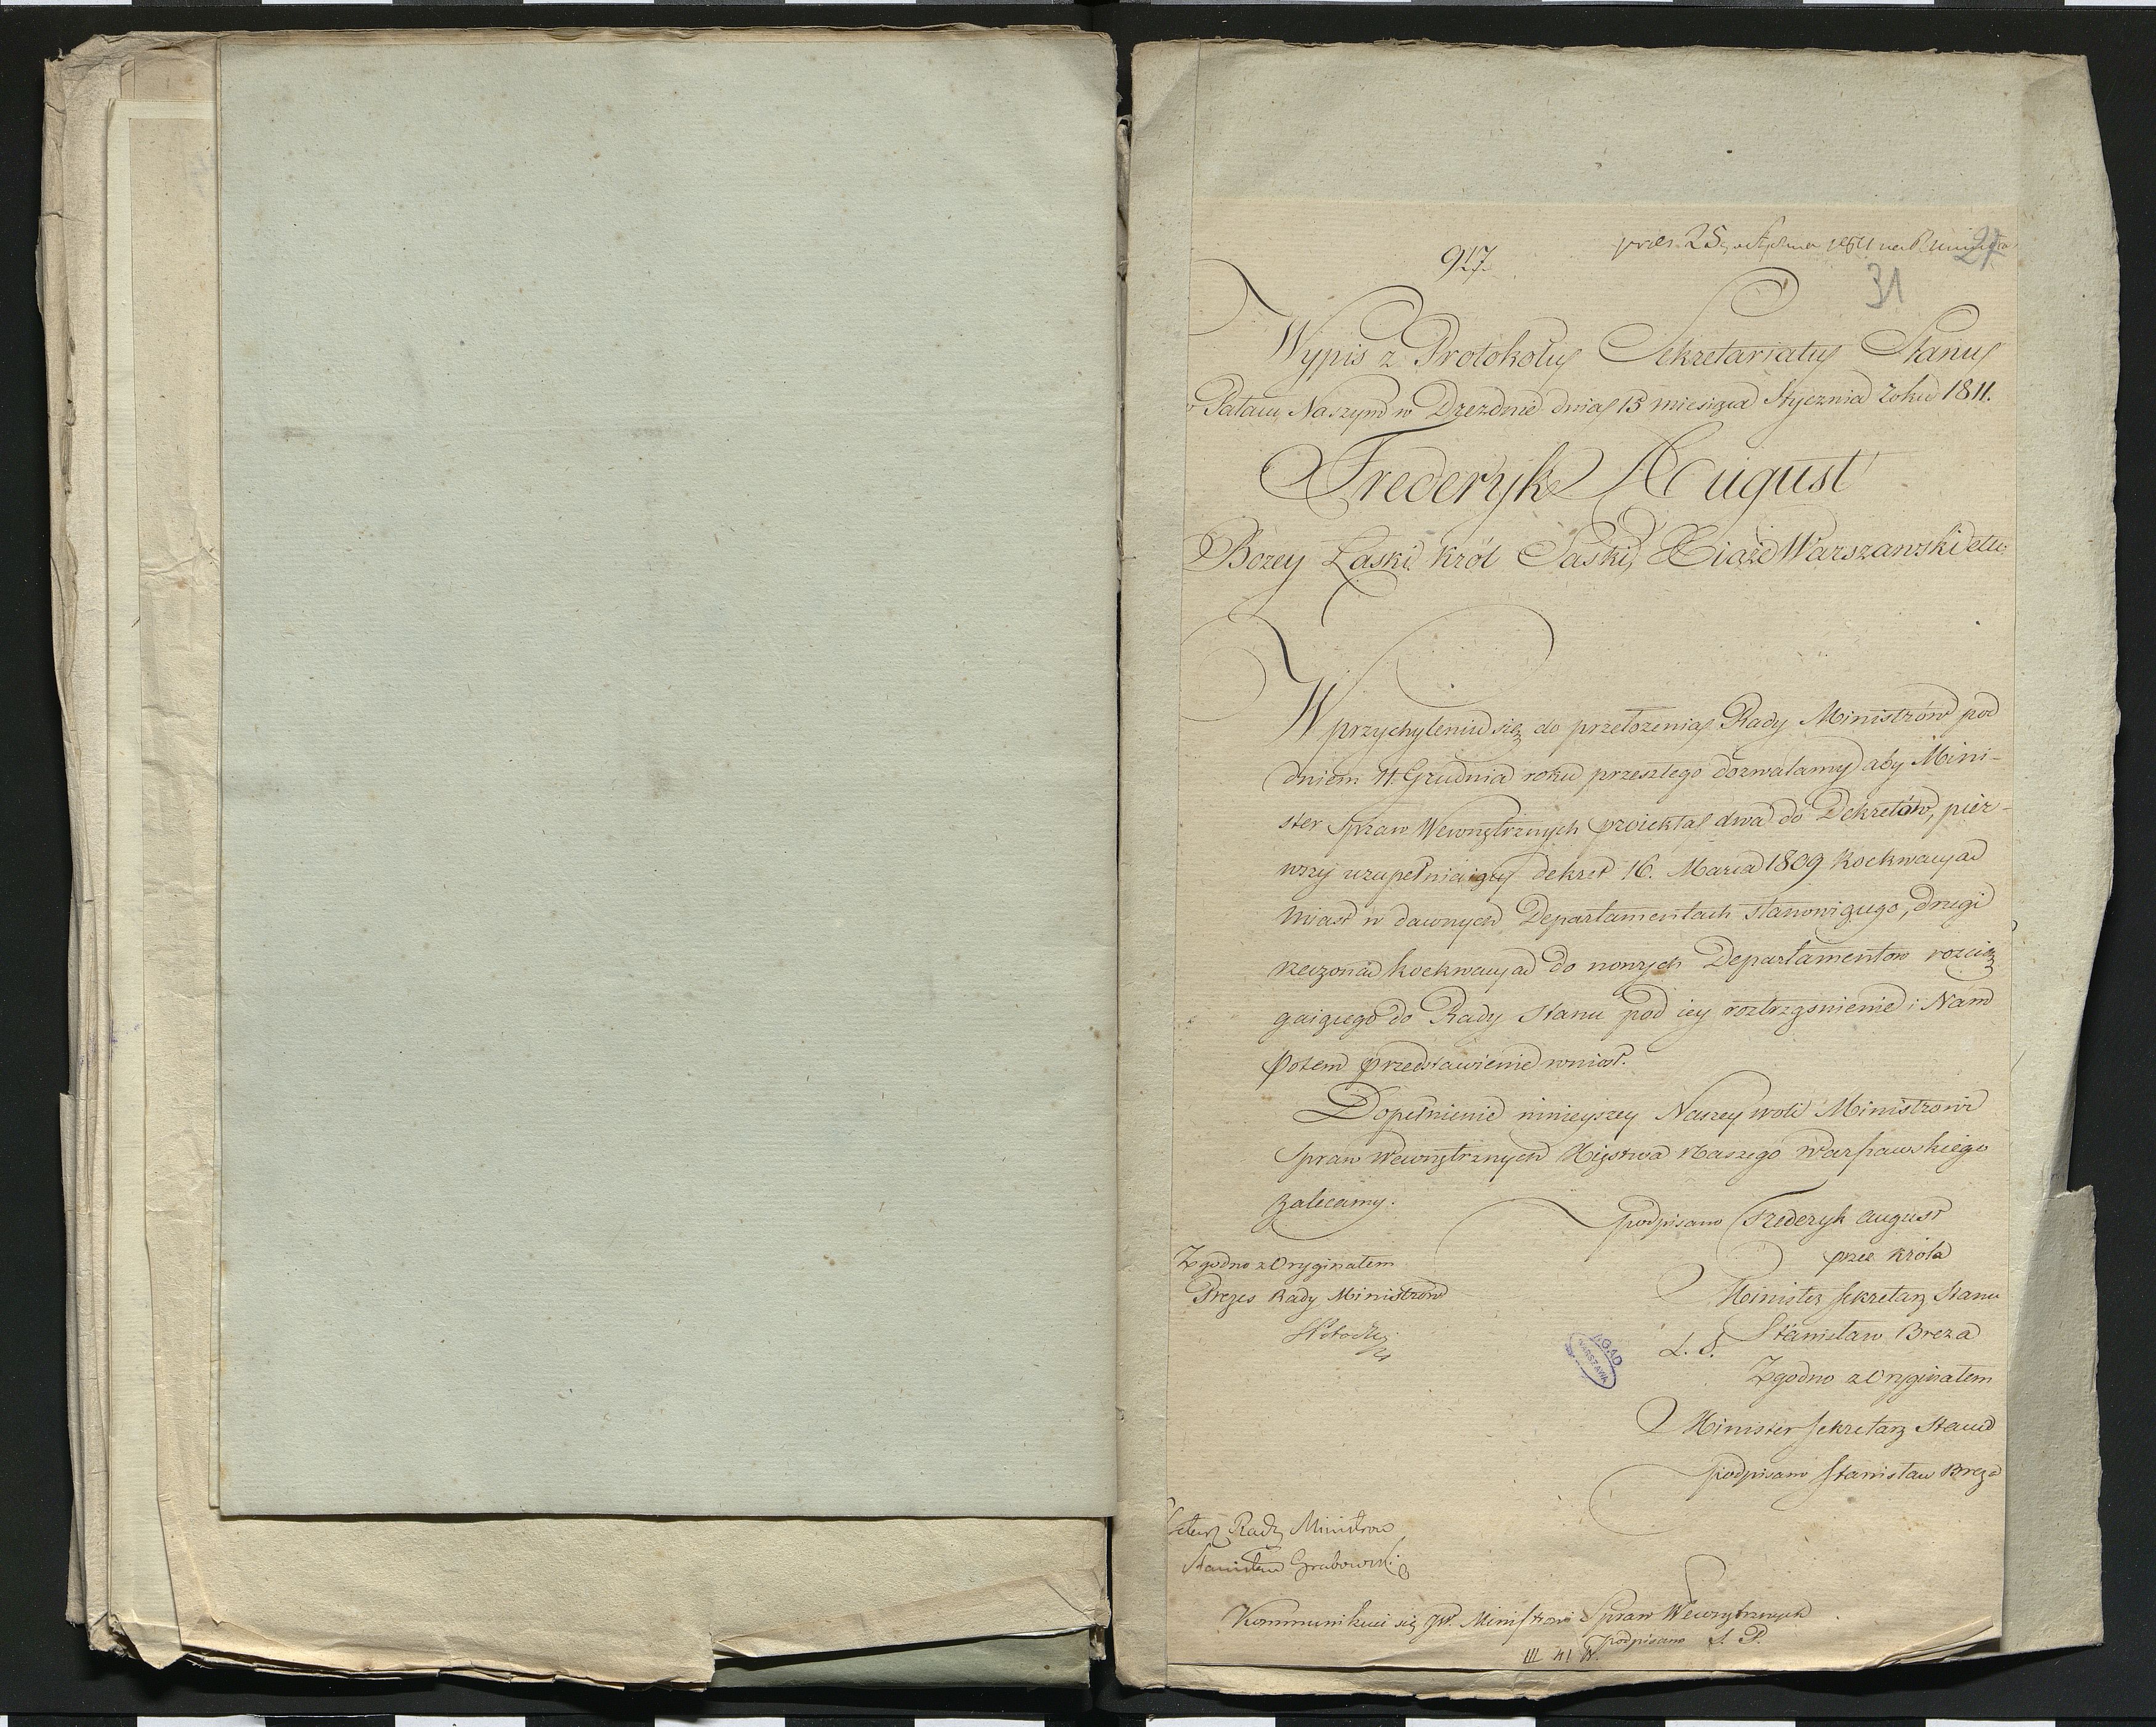 917.
pres. 25
27
31
Wypis z Protokołu Sekretariatu Stanu
w Pałacu Naszym w Dreźdnie dnia 15 miesiąca Stycznia roku 1811.
Frederyk August
Bożey Łaski Król Saski, Xiąże Warszawski etc:
W przychyleniu się do przełożenia Rady Ministrów pod
dniem 11. Grudnia roku przeszłego dozwalamy aby Mini-
ster Spraw Wewnętrznych proiekta dwa do Dekretów, pier-
wszy uzupełniaiący dekret 16. Marca 1809 koekwacyą
miast w dawnych Departamentach stanowiącego, drugi
rzeczoną koekwacyą do nowych Departamentów rozcią
gaiącego do Rady Stanu pod iey roztrząśnienie i Nam
potem przedstawienie wniósł.
Dopełnienie ninieyszey Naszey woli Ministrowi
Spraw Wewnętrznych Xięstwa Naszego Warszawskiego
zalecamy.
podpisano Frederyk August
przez Króla
Minister Sekretarz Stanu
L. S. Stanisław Breza
Zgodno z Oryginałem
Minister Sekretarz Stanu
podpisano Stanisław Breza
Zgodno z Oryginałem
Prezes Rady Ministrów
A.G.A.D
WARSZAWA
Rady Ministrow
Stanisław Grabowski
Kommunikuie się JW. Ministrowi Spraw Wewnętrznych
podpisano S. P.
III 41 W.